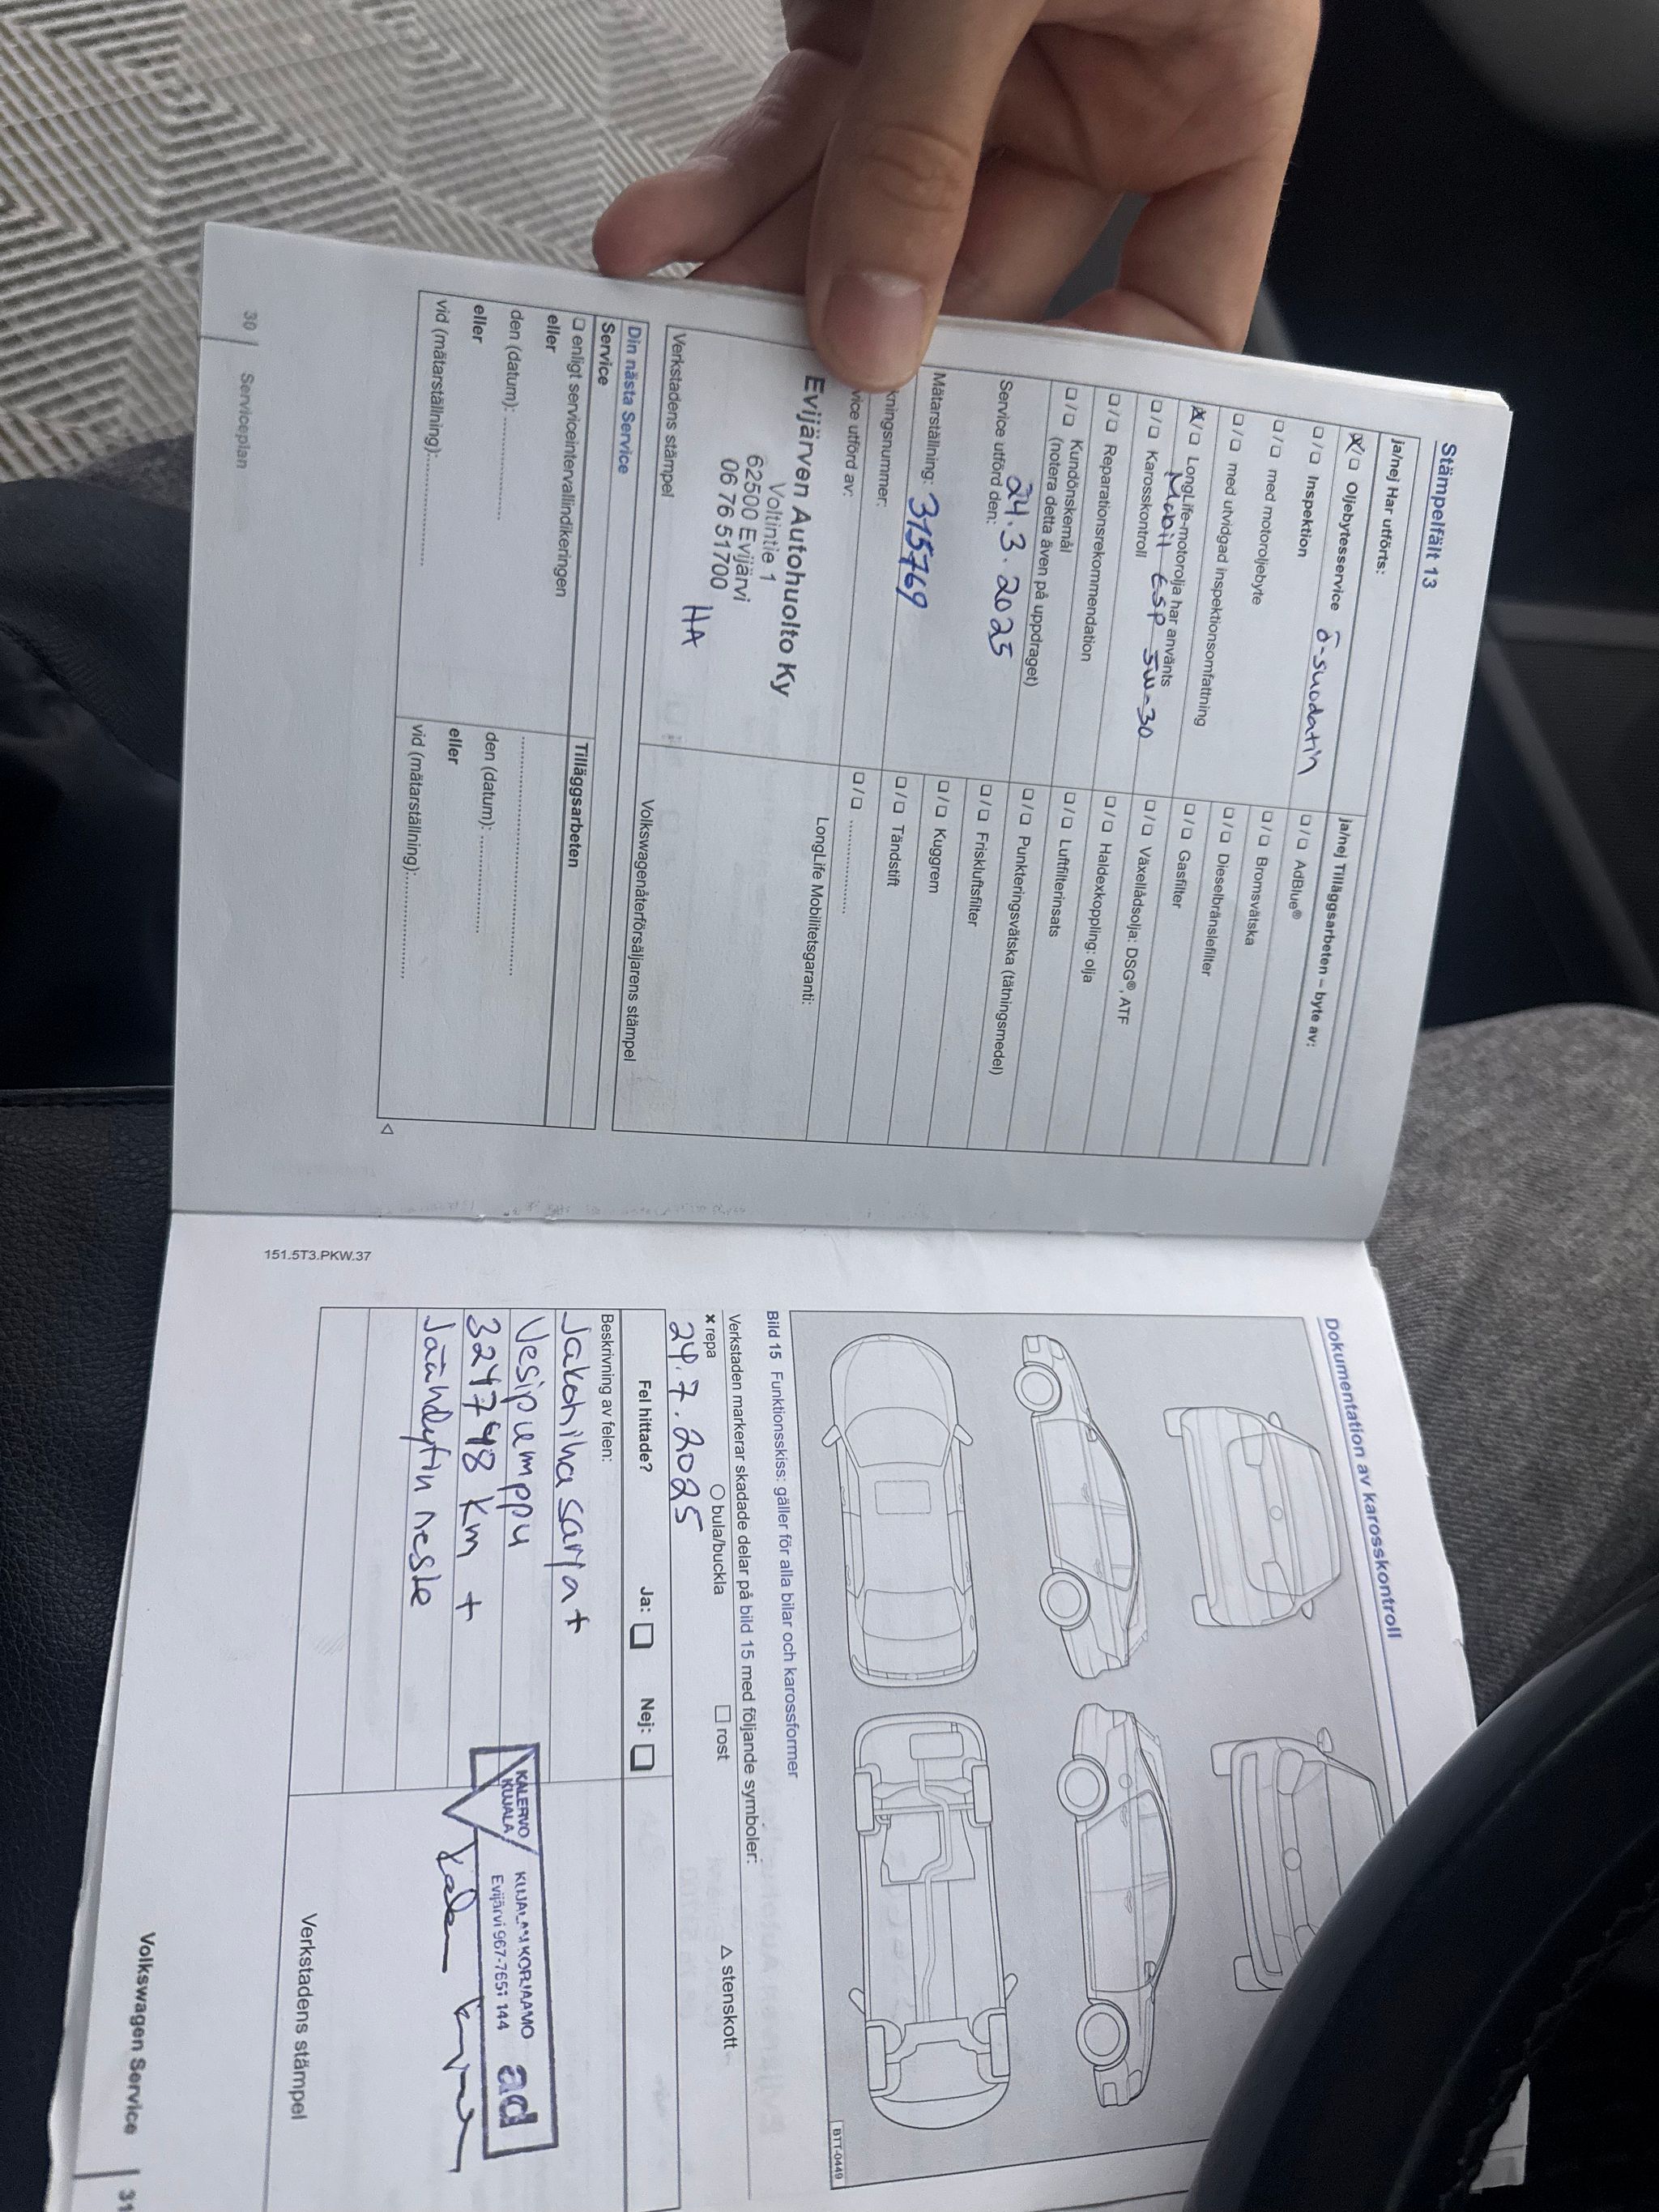 Stämpelfält 13
ja/nej Har utförts:
☒/☐ Oljebytesservice ö-suodatin
☐/☐ Inspektion
☐/☐ med motoroljebyte
☐/☐ med utvidgad inspektionsomfattning
☒/☐ LongLife-motorolja har använts
Mobil ESP 5W-30
☐/☐ Karosskontroll
☐/☐ Reparationsrekommendation
☐/☐ Kundönskemål
(notera detta även på uppdraget)
Service utförd den:
24.3.2025
Mätarställning: 315769
kningsnummer:
vice utförd av:
Evijärven Autohuolto Ky
Voltintie 1
62500 Evijärvi
06 76 51700
HA
Verkstadens stämpel
ja/nej Tilläggsarbeten – byte av:
☐/☐ AdBlue®
☐/☐ Bromsvätska
☐/☐ Dieselbränslefilter
☐/☐ Gasfilter
☐/☐ Växellådsolja: DSG®, ATF
☐/☐ Haldexkoppling: olja
☐/☐ Luftfilterinsats
☐/☐ Punkteringsvätska (tätningsmedel)
☐/☐ Friskluftsfilter
☐/☐ Kuggrem
☐/☐ Tändstift
☐/☐ ...............
LongLife Mobilitetsgaranti:
Volkswagenåterförsäljarens stämpel
Din nästa Service
Service
☐ enligt serviceintervallindikeringen
eller
den (datum): ...............
eller
vid (mätarställning): ...............
Tilläggsarbeten
...............
den (datum): ...............
eller
vid (mätarställning): ...............
30 Serviceplan
151.5T3.PKW.37
Dokumentation av karosskontroll
BTT-0449
Bild 15 Funktionsskiss: gäller för alla bilar och karossformer
Verkstaden markerar skadade delar på bild 15 med följande symboler:
✖ repa ○ bula/buckla □ rost △ stenskott
24.7.2025
Fel hittade? Ja: ☐ Nej: ☐
Beskrivning av felen:
Jakohihasarja +
Vesipumppu
324798 km +
Jäähdytin neste
KALERVO
KUJALA
KUJALAN KORJAAMO
Evijärvi 967-7651 144
ad
Verkstadens stämpel
Volkswagen Service 31